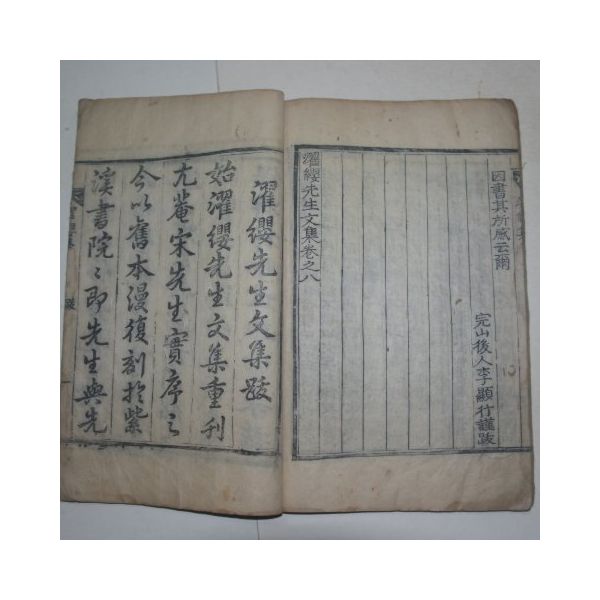 因書其所感云爾
完山後人李顯行謹跋
濯纓先生文集卷之八
濯纓先生文集跋
始濯纓先生文集重刊
尤菴宋先生實序之
今以舊本漫復刻於紫
溪書院〻即先生與先
跋